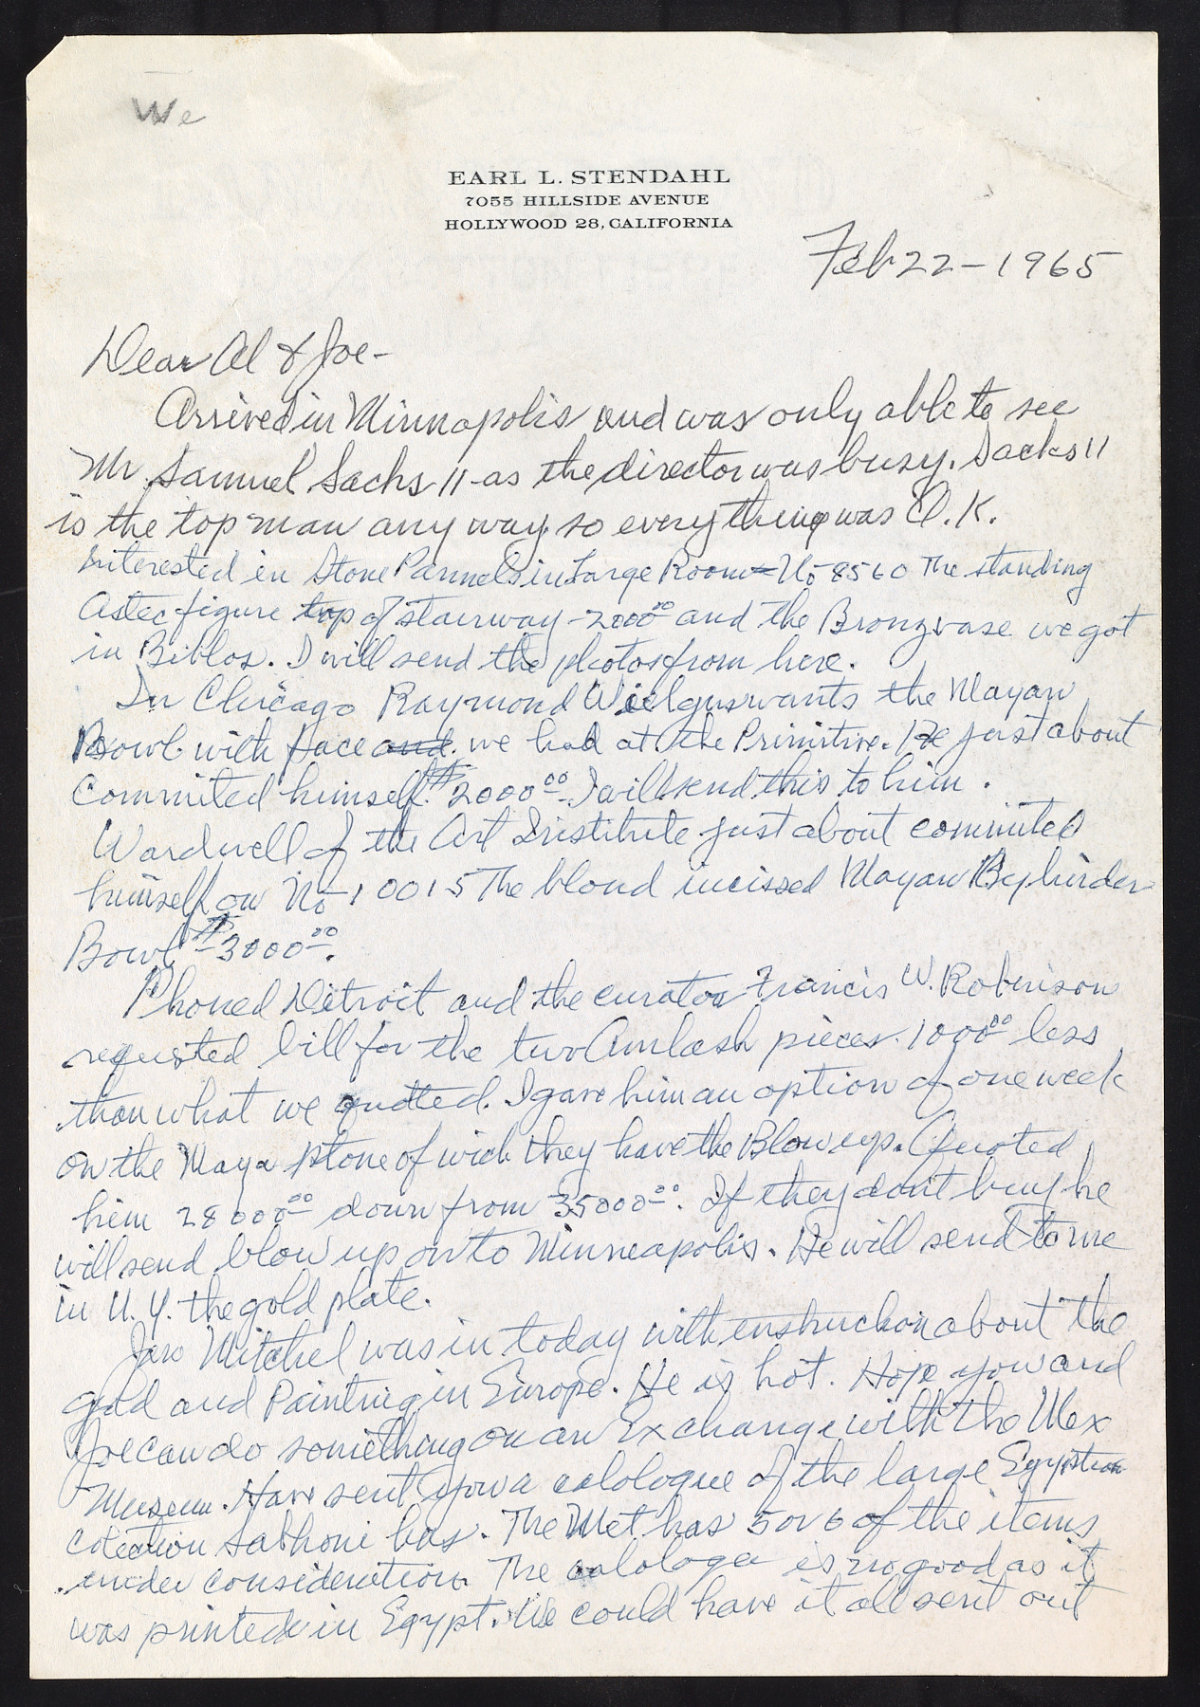 We
EARL L. STENDAHL
7055 HILLSIDE AVENUE
HOLLYWOOD 28, CALIFORNIA
Feb 22 - 1965
Dear Al & Joe -
Arrived in Minnapolis and was only able to see
Mr. Samuel Sachs 11 - as the director was busy. Sacks 11
is the top man any way so everything was O.K.
Interested in Stone Pannels in Large Room - No 8560 The standing
Astec figure top of stairway - 2000.00 and the Bronz vase we got
in Biblos. I will send the photos from here.
In Chicago Raymond Wielgus wants the Mayan
Bowl with face and we had at the Primitive. He just about
Commited himself. $2000.00 I will send this to him.
Wardwell of the Art Institute just about commited
himself on No 10015 The blond incissed Mayan
Bowl $3000.00.
Phoned Detroit and the curator Francis W. Robinson
requested bill for the two Amlash pieces. 1000.00 less
than what we quoted. I gave him an option of one week
on the Maya stone of wich they have the Blow up. Quoted
him 28000.00 down from 35000.00. If they dont buy he
will send blow up on to Minneapolis. He will send to me
in N.Y. the gold plate.
Jan Mitchel was in today with enstruckion about the
gold and Painting in Europe. He is hot. Hope you and
Joe can do something on an Exchange with the Mex
Museum. Have sent you a calologue of the large Egyption
Colection has. The Met has 5 or 6 of the items
under consideration. The calologe is no good as it
was printed in Egypt. We could have it all sent out